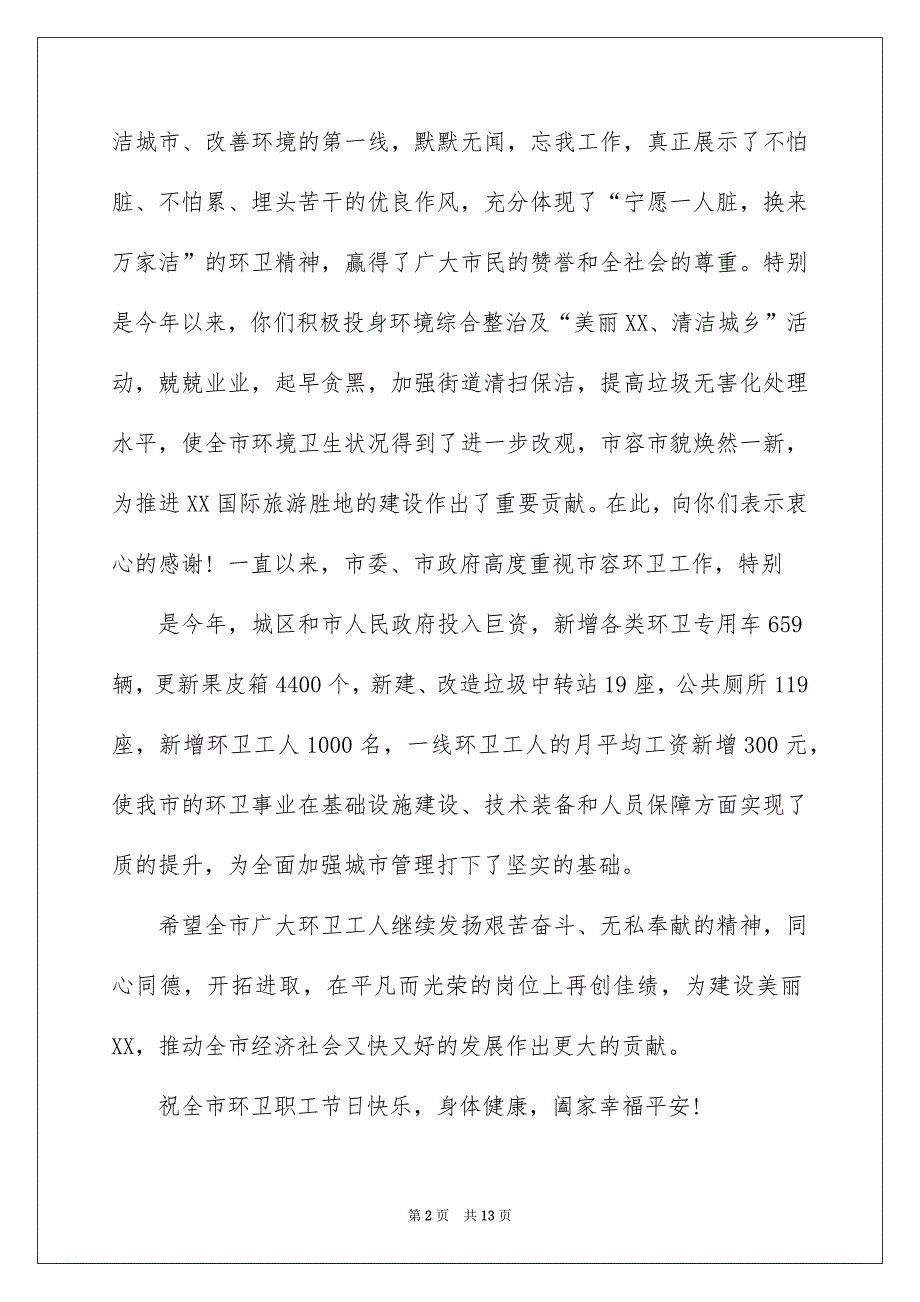 洁城市、改善环境的第一线，默默无闻，忘我工作，真正展示了不怕
脏、不怕累、埋头苦干的优良作风，充分体现了“宁愿一人脏，换来
万家洁”的环卫精神，赢得了广大市民的赞誉和全社会的尊重。特别
是今年以来，你们积极投身环境综合整治及“美丽 XX、清洁城乡”活
动，兢兢业业，起早贪黑，加强街道清扫保洁，提高垃圾无害化处理
水平，使全市环境卫生状况得到了进一步改观，市容市貌焕然一新，
为推进 XX 国际旅游胜地的建设作出了重要贡献。在此，向你们表示衷
心的感谢! 一直以来，市委、市政府高度重视市容环卫工作，特别
是今年，城区和市人民政府投入巨资，新增各类环卫专用车 659
辆，更新果皮箱 4400 个，新建、改造垃圾中转站 19 座，公共厕所 119
座，新增环卫工人 1000 名，一线环卫工人的月平均工资新增 300 元，
使我市的环卫事业在基础设施建设、技术装备和人员保障方面实现了
质的提升，为全面加强城市管理打下了坚实的基础。
希望全市广大环卫工人继续发扬艰苦奋斗、无私奉献的精神，同
心同德，开拓进取，在平凡而光荣的岗位上再创佳绩，为建设美丽
XX，推动全市经济社会又快又好的发展作出更大的贡献。
祝全市环卫职工节日快乐，身体健康，阖家幸福平安!
第 2 页 共 13 页